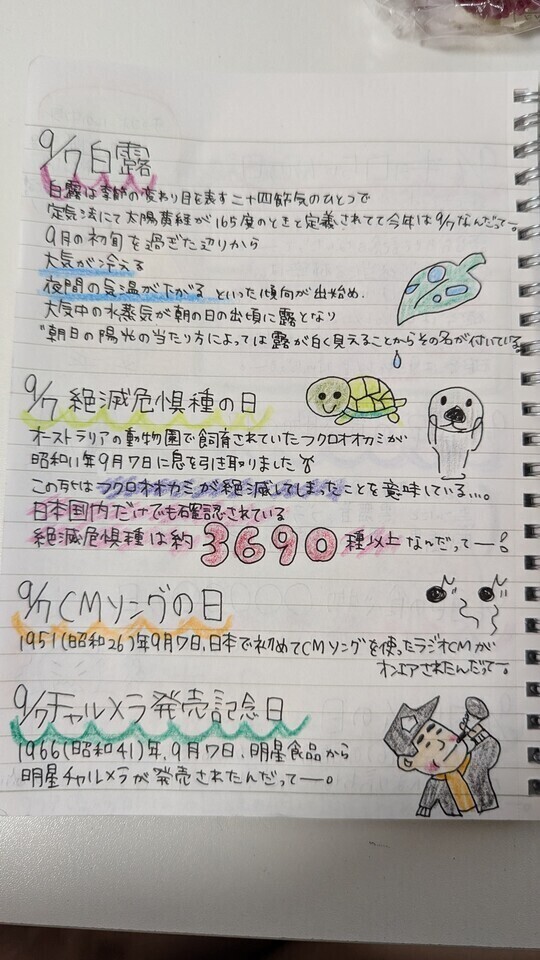 9/7 白露
白露は季節の変わり目を表す二十四節気のひとつで
定気法にて太陽黄経が165度のときと定義されてて今年は9/7なんだってー。
9月の初旬を過ぎた辺りから
大気が冷える
夜間の気温が下がる といった傾向が出始め、
大気中の水蒸気が朝の日の出頃に露となり
"朝日の陽光の当たり方によっては露が白く見えることからその名が付いている
9/7 絶滅危惧種の日
オーストラリアの動物園で飼育されていたフクロオオカミが
昭和11年9月7日に息を引き取りました
この死はフクロオオカミが絶滅してしまったことを意味している…。
日本国内だけでも確認されている
絶滅危惧種は約3690種以上なんだってー!
9/7 CMソングの日
1951(昭和26)年9月7日、日本で初めてCMソングを使ったラジオCMが
オンエアされたんだってー。
9/7チャルメラ発売記念日
1966(昭和41)年、9月7日、明星食品から
明星チャルメラが発売されたんだってー。